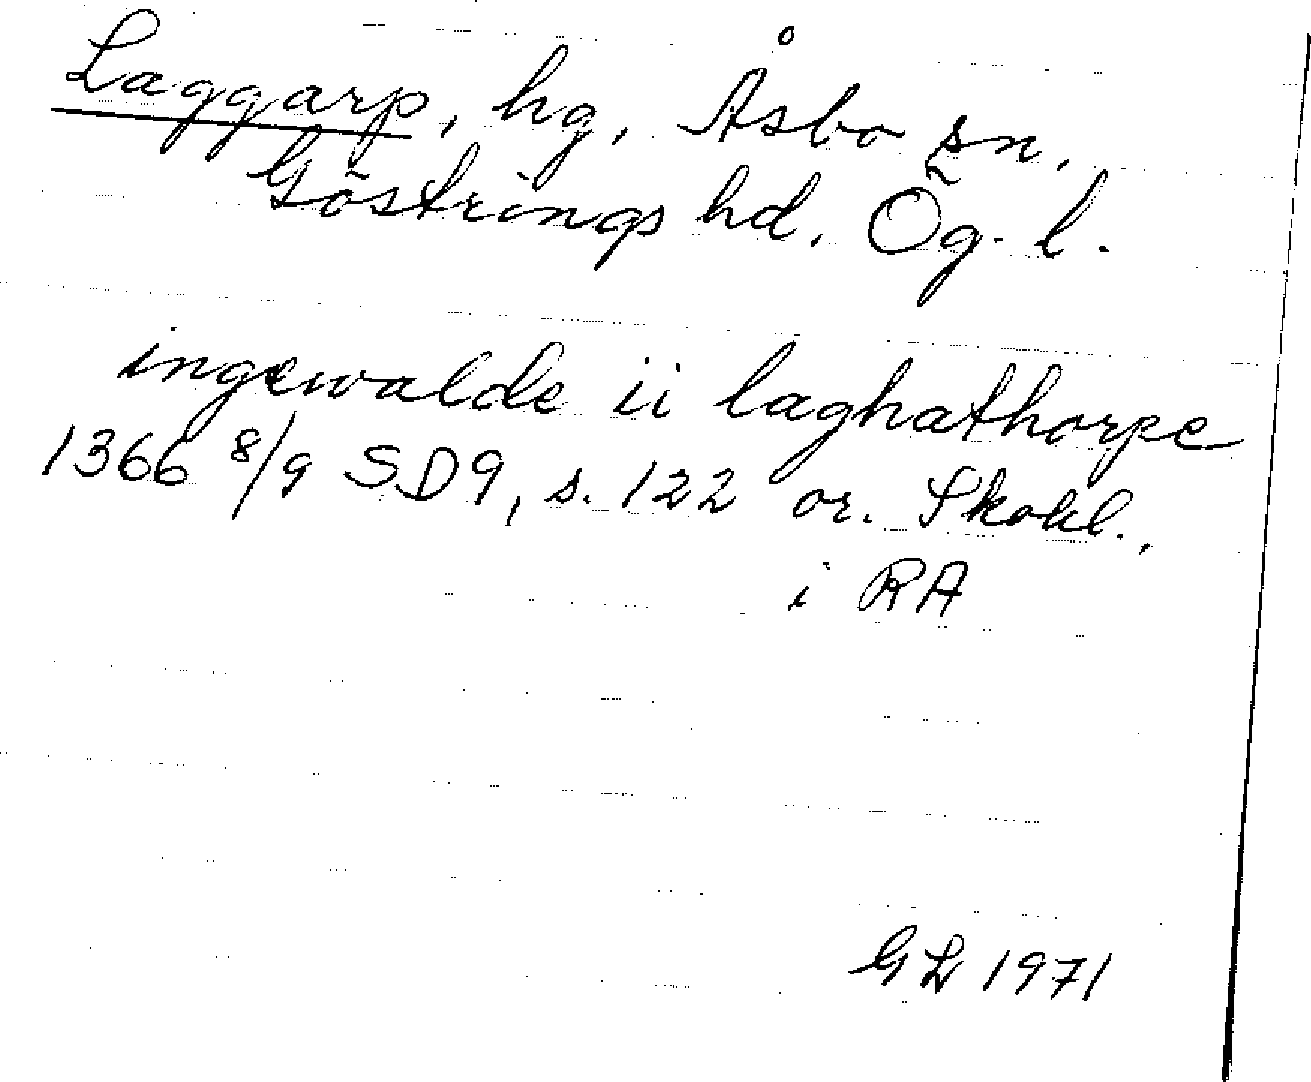 Laggarp, hg, Åsbo sn,
Göstrings hd. Ög. l.
ingewalde ii laghathorpe
1366 8/9 SD9, s. 122 or. Skokl.,
i RA
GL 1971